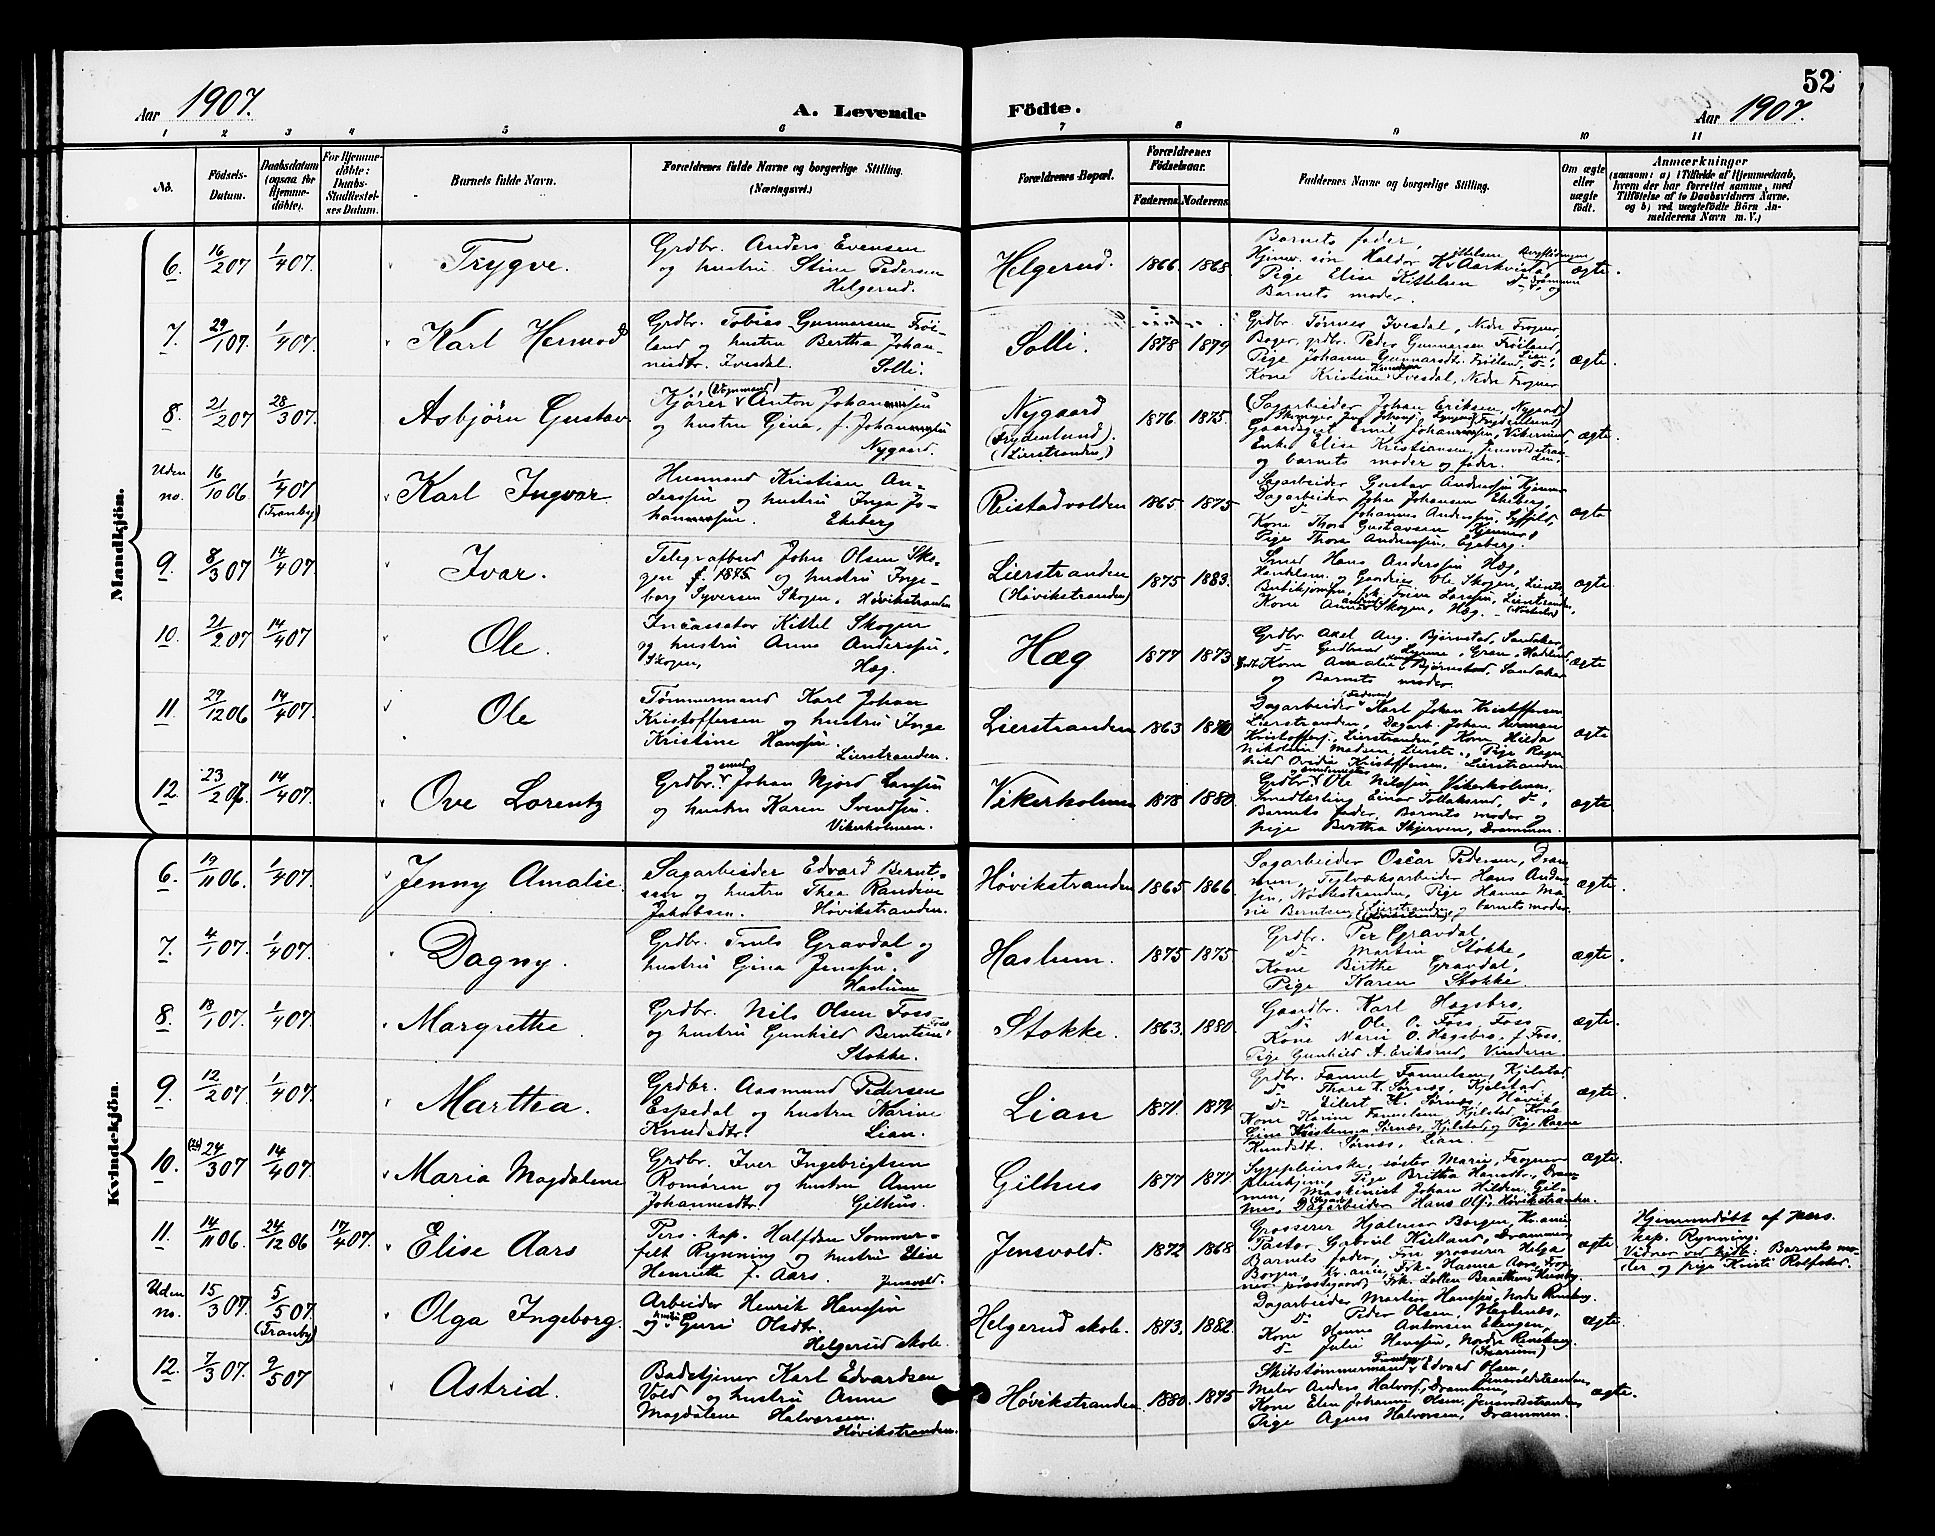 52
Aar 1907. A. Levende Födte. Aar 1907.
1 2 3 4 5 6 7 8 9 10 11
No. Födsels-Datum. Daabsdatum (ogsaa for Hjemme-döbte). For Hjemme-döbte: Daabs-Stadfæstel-ses Datum. Barnets fulde Navn. Forældrenes fulde Navne og borgerlige Stilling. (Næringsvei.) Forældrenes Bopæl. Forældrenes Födselsaar. Faderens Moderens Faddernes Navne og borgerlige Stilling. Om ægte eller uægte födt. Anmærkninger (saasom: a) i Tilfælde af Hjemmedaab, hvem der har forrettet samme, med Tilföielse af to Daabsvidners Navne. og b) ved uægtefödte Börn An-melderens Navn m. V.)
Mandkjön.
6. 16/2 07 1/4 07. Trygve. Grdbr. Anders Evensen
og hustru Stine Pedersen
Helgerud. Helgerud. 1866. 1868. Barnets fader,
Pige Elise Kittelsen
Barnets moder. ægte
7. 29/1 07. 1/4 07. Karl Hermod Grdbr. Tobias Gunnarsen Fröi-
land og hustru Bertha Johan-
nesdtr. Ivesdal. Solli. Solli. 1878 1879 Grdbr. Tønnes Ivesdal, Nedre Frogner
Boger, grdbr. Peder Gunnarsen Frøiland,
Pige Johanne Gunnarsdtr. Frøiland,
Kone Kristine Ivesdal, Nedre Frogner ægte.
8. 21/2 07 28/3 07. Asbjörn Gustav Kjörer (Vognmand) Anton Johannesen
og hustru Gina, f. Johannesen
Nygaard. Nygaard
(Frydenlund).
(Lierstranden) 1876. 1875. (Sagarbeider Johan Eriksen, Nygaard)
Enke Elise Kristiansen,
og barnets moder og fader. ægte.
Uden no. 16/10 06 1/4 07 (Tranby) Karl Ingvar. Husmand Kristian An-
derssen og hustru Inga Jo-
hannessen. Ekeberg Reistadvolden 1865 1875 Sagarbeider Gustav Anderssen
Dagarbeider Johan Johansen Ekeberg,
Kone Thora Gustavsen
Pige Thora Anderssen, Egeberg. ægte
9. 8/3 07 14/4 07. Ivar. Telegrafbud John Olsen Sko-
gen f. 1875 og hustru Inge-
borg Syversen Skogen. Høvikstranden Lierstranden
(Høvikstranden) 1875 1883. Smed Hans Anderssen Hæg,
Kone Anne Skogen, Hæg. ægte
10. 21/2 07 14/4 07 Ole. Incassator Kittel Skogen
og hustru Anne Anderssen,
Skogen, Hæg. Hæg 1877 1873 Grdbr. Axel Aug. Bjørnstad, Sandaker
Kone Amalie Bjørnstad, Sandaker
og Barnets moder. ægte
11. 29/12 06 14/4 07. Ole Tømmermand Karl Johan
Kristoffersen og hustru Inga
Kristine Hanssen. Lierstranden. Lierstranden 1863 1870 Dagarbeider Karl Johan Kristoffersen
Lierstranden, Dagarb. Johan Herman
Kristoffers., Lierstranden, Kone Hilda
Nikoline Madsen, Lierstr., Pige Ragn-
hild Ovidia Kristoffersen, Lierstranden ægte
12. 23/2 07. 14/4 07. Ove Lorentz Grdbr. og smed Johan Njord Lanssen
og hustru Karen Svendsen.
Vikerholmen. Vikerholmen 1878 1880. Grdbr. Ole Nilssen Vikerholmen,
Smedlærling Einar Tollaksrud, do,
Barnets fader, Barnets moder og
pige Bertha Skjerven, Drammen. ægte
Kvindekjön.
6. 19/11 06. 1/4 07. Jenny Amalie. Sagarbeider Edvard Bernt-
sen og hustru Thea Randine
Jakobsen. Høvikstranden. Høvikstranden 1865 1866. Sagarbeider Oscar Pedersen, Dram-
men, Teglværksarbeider Hans Anders-
sen, Nøstestranden, Pige Hanna Ma-
rie Berntsen, Lierstranden og barnets moder. ægte.
7. 4/1 07. 1/4 07. Dagny. Grdbr. Truls Gravdal og
hustru Gina Jenssen.
Haslum Haslum. 1875 1875. Grdbr. Per Gravdal,
do Martin Stokke,
Kone Birthe Gravdal,
Pige Karen Stokke. ægte.
8. 13/1 07. 1/4 07. Margrethe Grdbr. Nils Olsen Foss
og hustru Gunhild Berntine Foss
Stokke. Stokke. 1863. 1880. Gaardbr. Karl Hægsbro,
do Ole O. Foss, Foss,
Kone Marie O. Hægsbro, f. Foss.
Pige Gunhild A. Eriksrud, Vindern. ægte.
9. 12/2 07. 1/4 07. Martha. Grdbr. Aasmund Pedersen
Espedal og hustru Karine
Knudsdtr. Lian. Lian 1871. 1874. Grdbr. Famuel Famuelsen, Kjelstad
do Thore K. Sørnæs, Kjelstad
do Eilert K. Sørnæs, Høvik,
Kone Karine Famuelsen, Kjelstad, Kone
Gina Kristensen Sørnæs, Kjelstad, og Pige Ragna
Knudsdt. Sørnæs, Lian. ægte.
10. (26) 24/3 07 14/4 07. Maria Magdalene Grdbr. Iver Ingebrigtsen
Romören og hustru Anne
Johannesdtr. Gilhus. Gilhus 1877 1877. Sygepleierske, søster Marie, Frogner
pleiehjem, Pige Britha Hansdtr., Dram-
men, Maskinist Johan Hilden, Gil-
hus, Dagarbeider Hans Ols., Høvikstranden. ægte.
11. 14/11 06. 24/12 06 17/4 07. Elise Aars Pers. kap. Halfdan Sommer-
felt Rynning og hustru Elise
Henriette f. Aars. Jensvold. Jensvold. 1872 1868 Grosserer Hjalmar Borgen, Kr.ania
Pastor Gabriel Kielland, Drammen,
Barnets fader, Fru grosserer Helga
Borgen, Kr.ania, Frk. Hanna Aars, Frog-
ner præstegaard, Frk. Lotten Braathen, Huseby. ægte Hjemmedøbt af pers.
kap. Rynning.
Vidner ved hjdb: Barnets mo-
der og pige Kristi Rolfstad.
Uden no. 15/3 07 5/5 07. (Tranby) Olga Ingeborg. Arbeider Henrik Hanssen
og hustru Guri Olsdtr.
Helgerud skole Helgerud skole. 1873. 1882. Dagarbeider Martin Hanssen, Nordre Renskaug.
do Peder Olsen,
Kone Hanna Antonsen
do Julie Hanssen, Nordre Renskaug. ægte.
12. 7/3 07. 9/5 07 Astrid. Badetjener Karl Edvardsen
Vold og hustru Anne
Magdalene Halvorsen.
Høvikstranden. Høvikstranden 1880. 1875 Skibstømmermand Edvard Olsen,
Maler Anders Halvors., Drammen,
Kone Elen Johanne Olsen, Jensvoldstranden
Pige Agnes Halvorsen, Drammen. ægte.